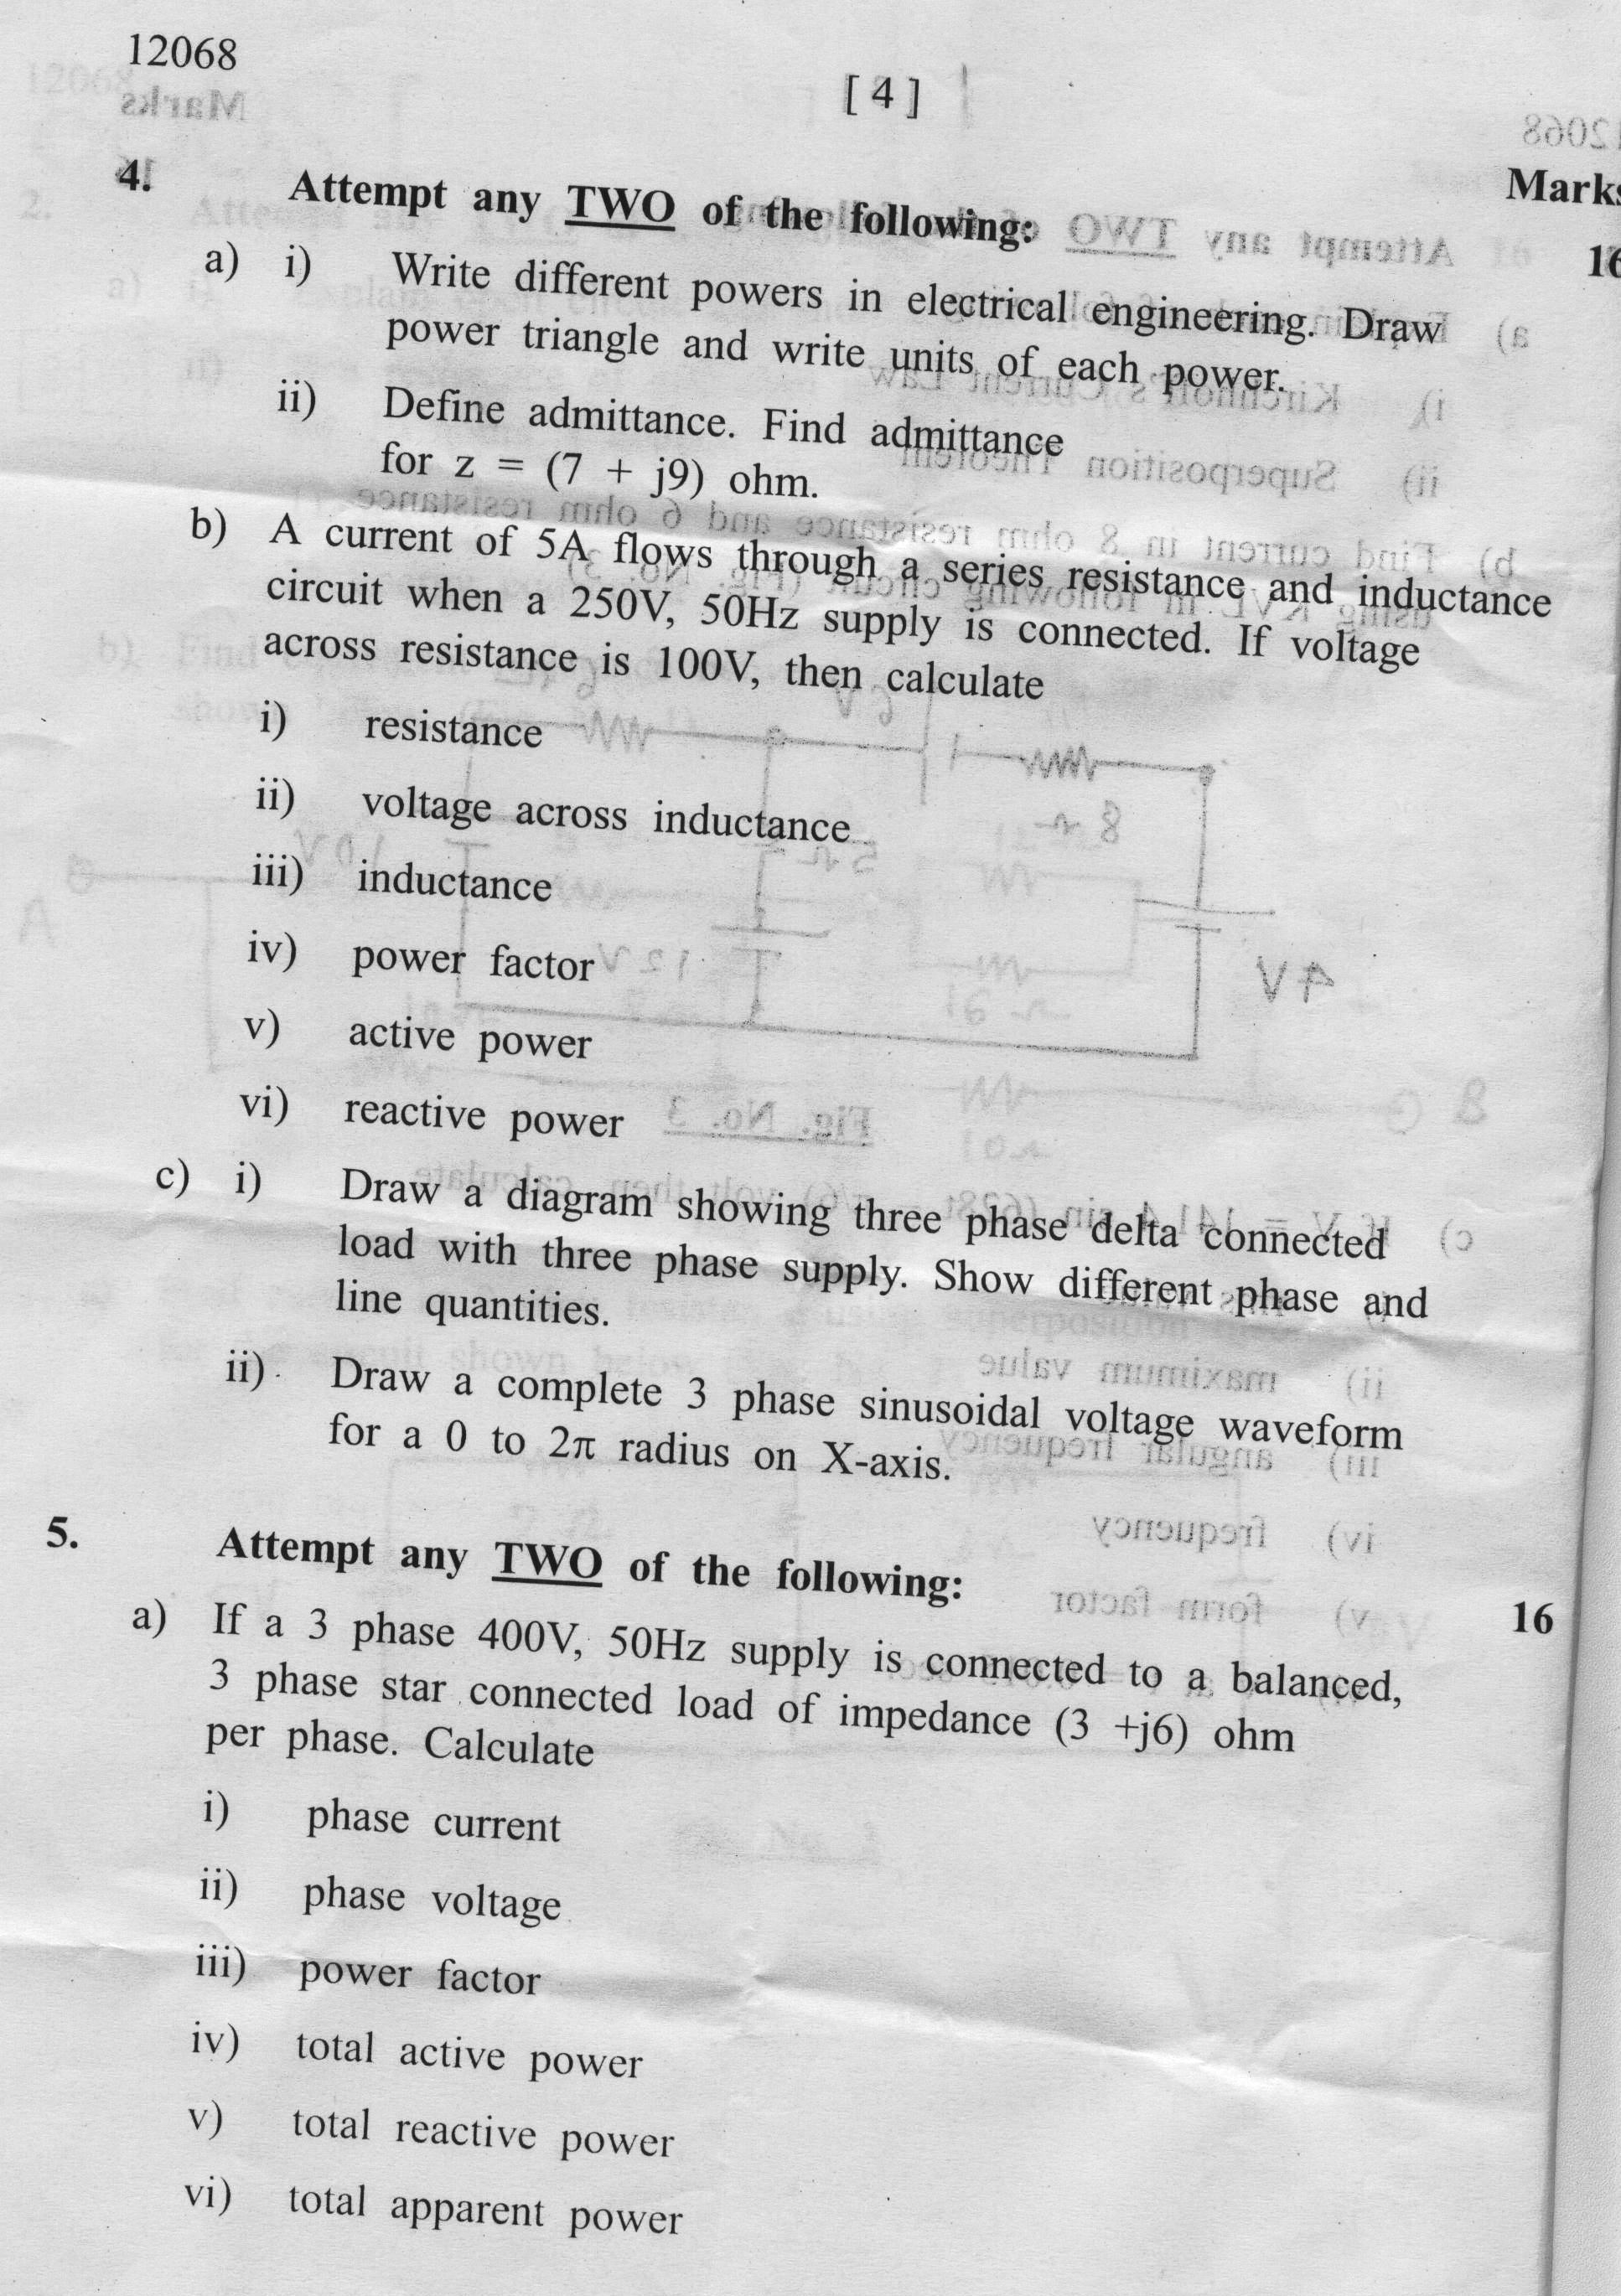 12068
[ 4 ]
Marks
4. Attempt any TWO of the following: 16
a) i) Write different powers in electrical engineering. Draw
power triangle and write units of each power.
ii) Define admittance. Find admittance
for z = (7 + j9) ohm.
b) A current of 5A flows through a series resistance and inductance
circuit when a 250V, 50Hz supply is connected. If voltage
across resistance is 100V, then calculate
i) resistance
ii) voltage across inductance
iii) inductance
iv) power factor
v) active power
vi) reactive power
c) i) Draw a diagram showing three phase delta connected
load with three phase supply. Show different phase and
line quantities.
ii) Draw a complete 3 phase sinusoidal voltage waveform
for a 0 to 2π radius on X-axis.
5. Attempt any TWO of the following: 16
a) If a 3 phase 400V, 50Hz supply is connected to a balanced,
3 phase star connected load of impedance (3 +j6) ohm
per phase. Calculate
i) phase current
ii) phase voltage
iii) power factor
iv) total active power
v) total reactive power
vi) total apparent power